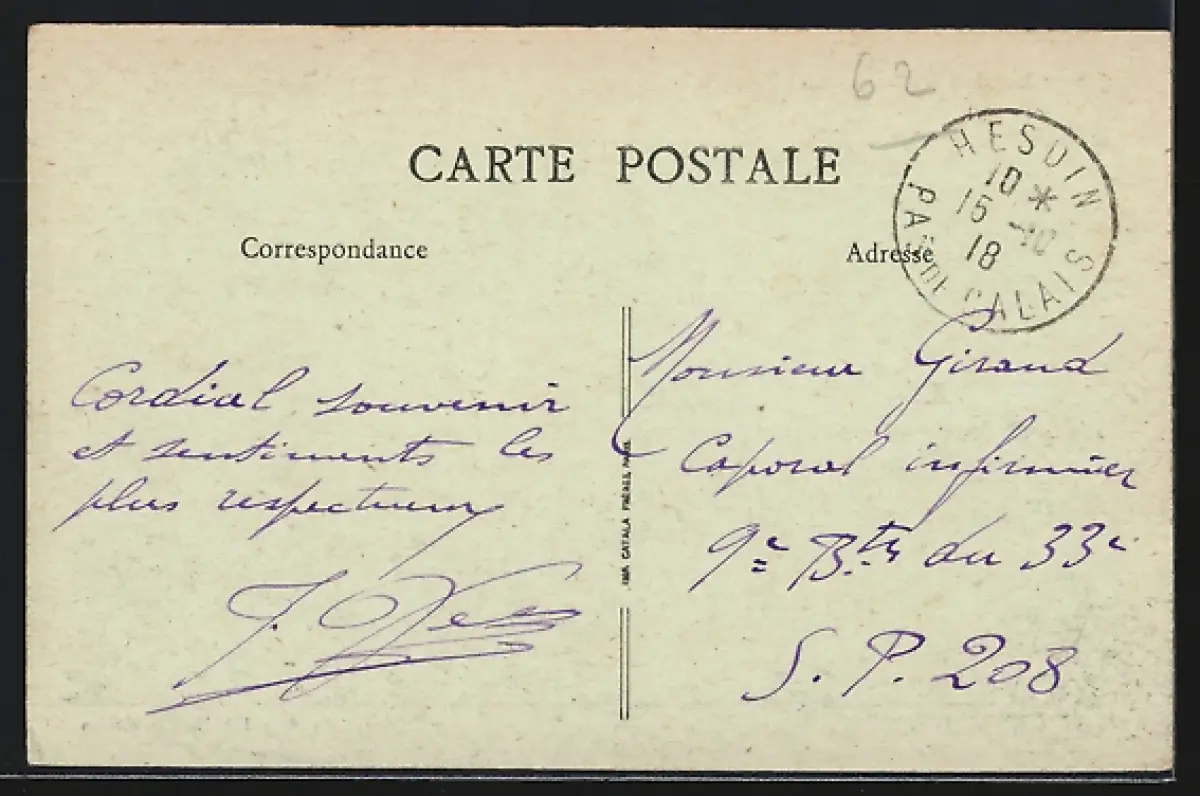 62
CARTE POSTALE
HESDIN
PAS DE CALAIS
10 *
15 -10
18
Correspondance
Adresse
Cordial souvenir
et sentiments les
plus respectueux
Monsieur Giraud
Caporal infirmier
9e Btie du 33e
S. P. 208
IMP. CATALA FRÈRES, PARIS